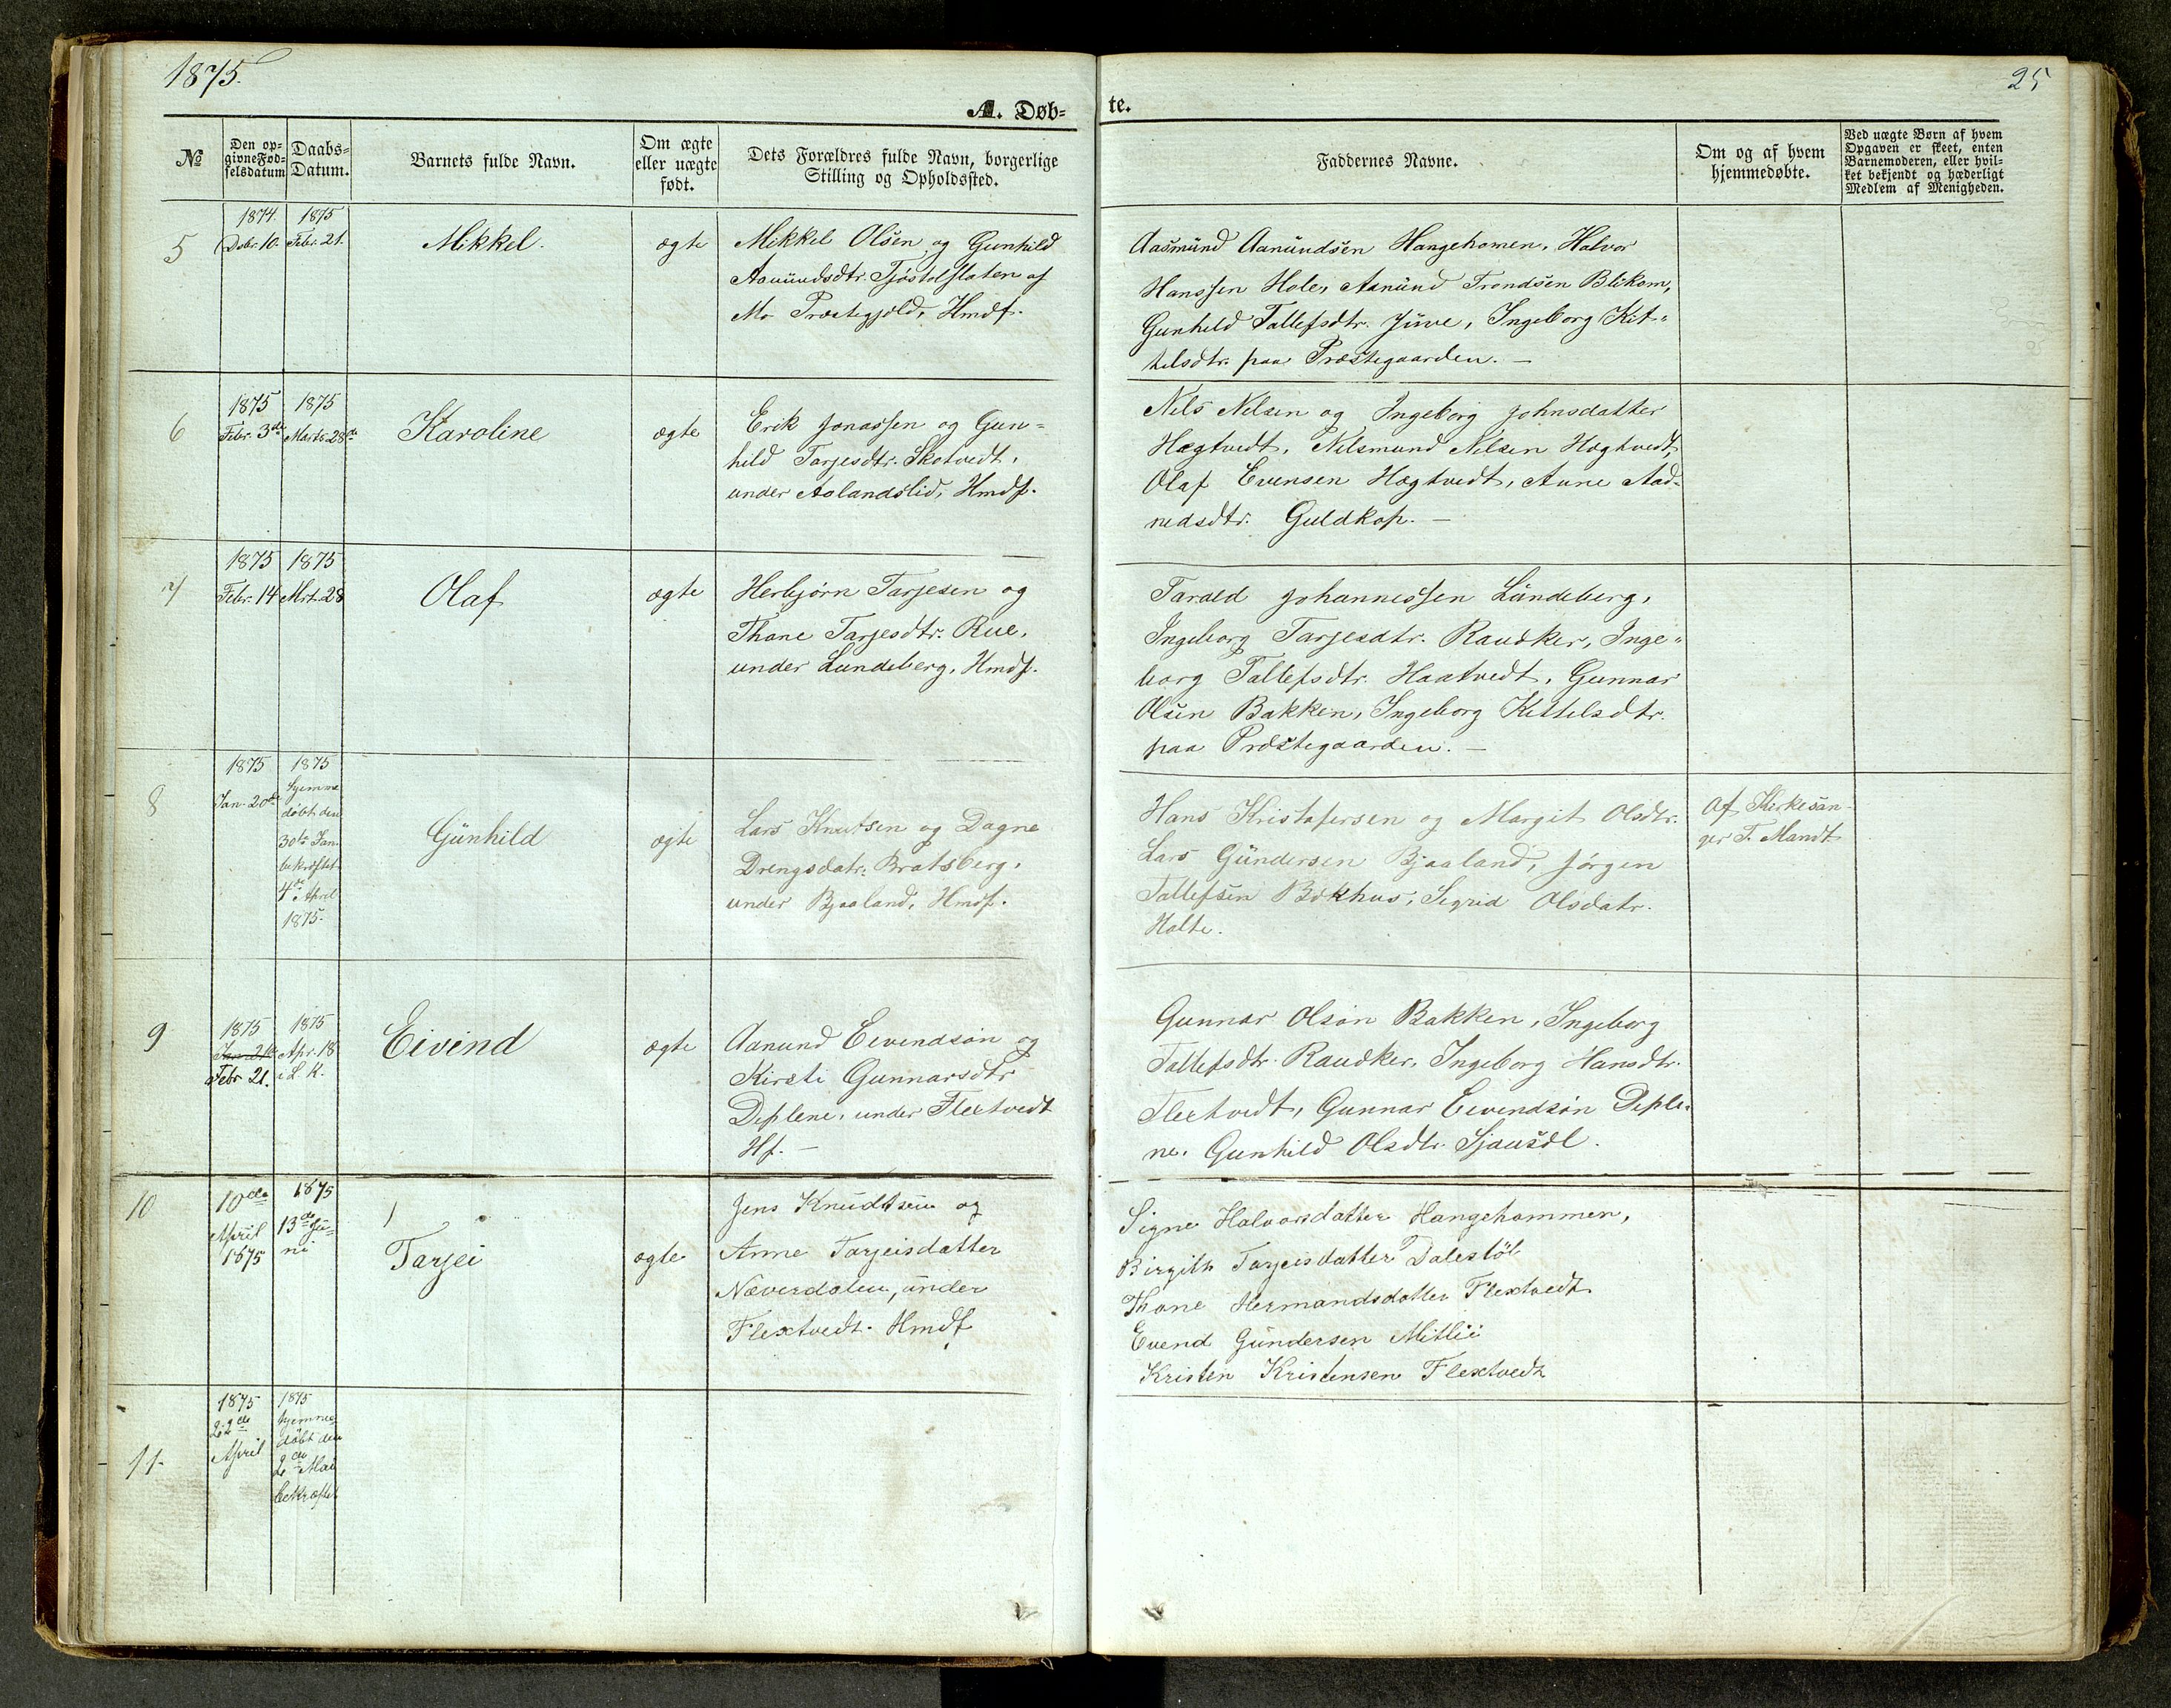 1875.
25
A. Døb-
te.
№
Den op-
givne Fød-
selsdatum
Daabs-
Datum.
Barnets fulde Navn.
Om ægte
eller uægte
født.
Dets Forældres fulde Navn, borgerlige
Stilling og Opholdssted.
Faddernes Navne.
Om og af hvem
hjemmedøbte.
Ved uægte Børn af hvem
Opgaven er skeet, enten
Barnemoderen, eller hvil-
ket bekjendt og hæderligt
Medlem af Menigheden.
5
1874.
Dcbr. 10.
1875
Febr. 21.
Mikkel.
ægte
Mikkel Olsen og Gunhild
Aanundsdtr. Tjöstolflaten af
Mo Præstegjeld, Hmdf.
Aasmund Aanundsen Hangehomen, Halvor
Hanssen Hole, Aanund Trondsen Blikom,
Gunhild Tallefsdtr. Juve, Ingeborg Kit-
telsdtr. paa Præstegaarden. —
6
1875
Febr. 3de
1875
Marts 28de
Karoline
ægte
Erik Jonassen og Gun-
hild Tarjesdtr. Skotvedt,
under Aalandslid, Hmdf.
Nils Nilsen og Ingeborg Johnsdatter
Hægtvedt, Nilsmund Nilsen Hægtvedt,
Olaf Evensen Hægtvedt, Aune Aad-
nedsdtr. Guldkop. —
7
1875
Febr. 14
1875
Mrt. 28
Olaf
ægte
Herbjørn Tarjesen og
Thone Tarjesdtr. Rue,
under Lundeberg, Hmdf.
Tarald Johannessen Lundeberg,
Ingeborg Tarjesdtr. Raudker, Inge-
borg Tallefsdtr. Haatvedt, Gunnar
Olsen Bakken, Ingeborg Kittelsdtr.
paa Præstegaarden. —
8
1875
Jan. 20de
1875
Hjemme
døbt den
30te Jan.
bekræftet
4de April
1875.
Gunhild
ægte
Lars Knutsen og Dagne
Drengsdatr. Bratsberg,
under Bjaaland, Hmdf.
Hans Kristofersen og Margit Olsdtr.
Lars Gundersen Bjaaland, Jörgen
Tallefsen Bökhus, Sigrid Olsdatr.
Holte.
Af Kirkesan-
ger T. Mandt
9
1875
Jan 21
Febr 21.
1875
Apr. 18
i L. K.
Eivind
ægte
Aanund Eivendsön og
Kirsti Gunnarsdtr
Deplene, under Flextvedt
Hf. —
Gunnar Olsön Bakken, Ingeborg
Tallefsdtr. Raudker, Ingeborg Hansdtr.
Flextvedt, Gunnar Eivendsön Deple-
ne. Gunhild Olsdtr. Sjausdl.
10
10de
April
1875
1875
13de Ju-
ni
Tarjei
ægte
Jens Knudtsen og
Anne Tarjeisdatter
Næverdalen, under
Flextvedt. Hmdf
Signe Halvorsdatter Hangehommen,
Birgith Tarjeisdatter Dalestöl
Thone Hermandsdatter Flextvedt
Evend Gundersen Mitlii
Kristen Kristensen Flextvedt
11.
1875
22de
April
1875
hjemme-
döbt den
2den Mai
bekræftet